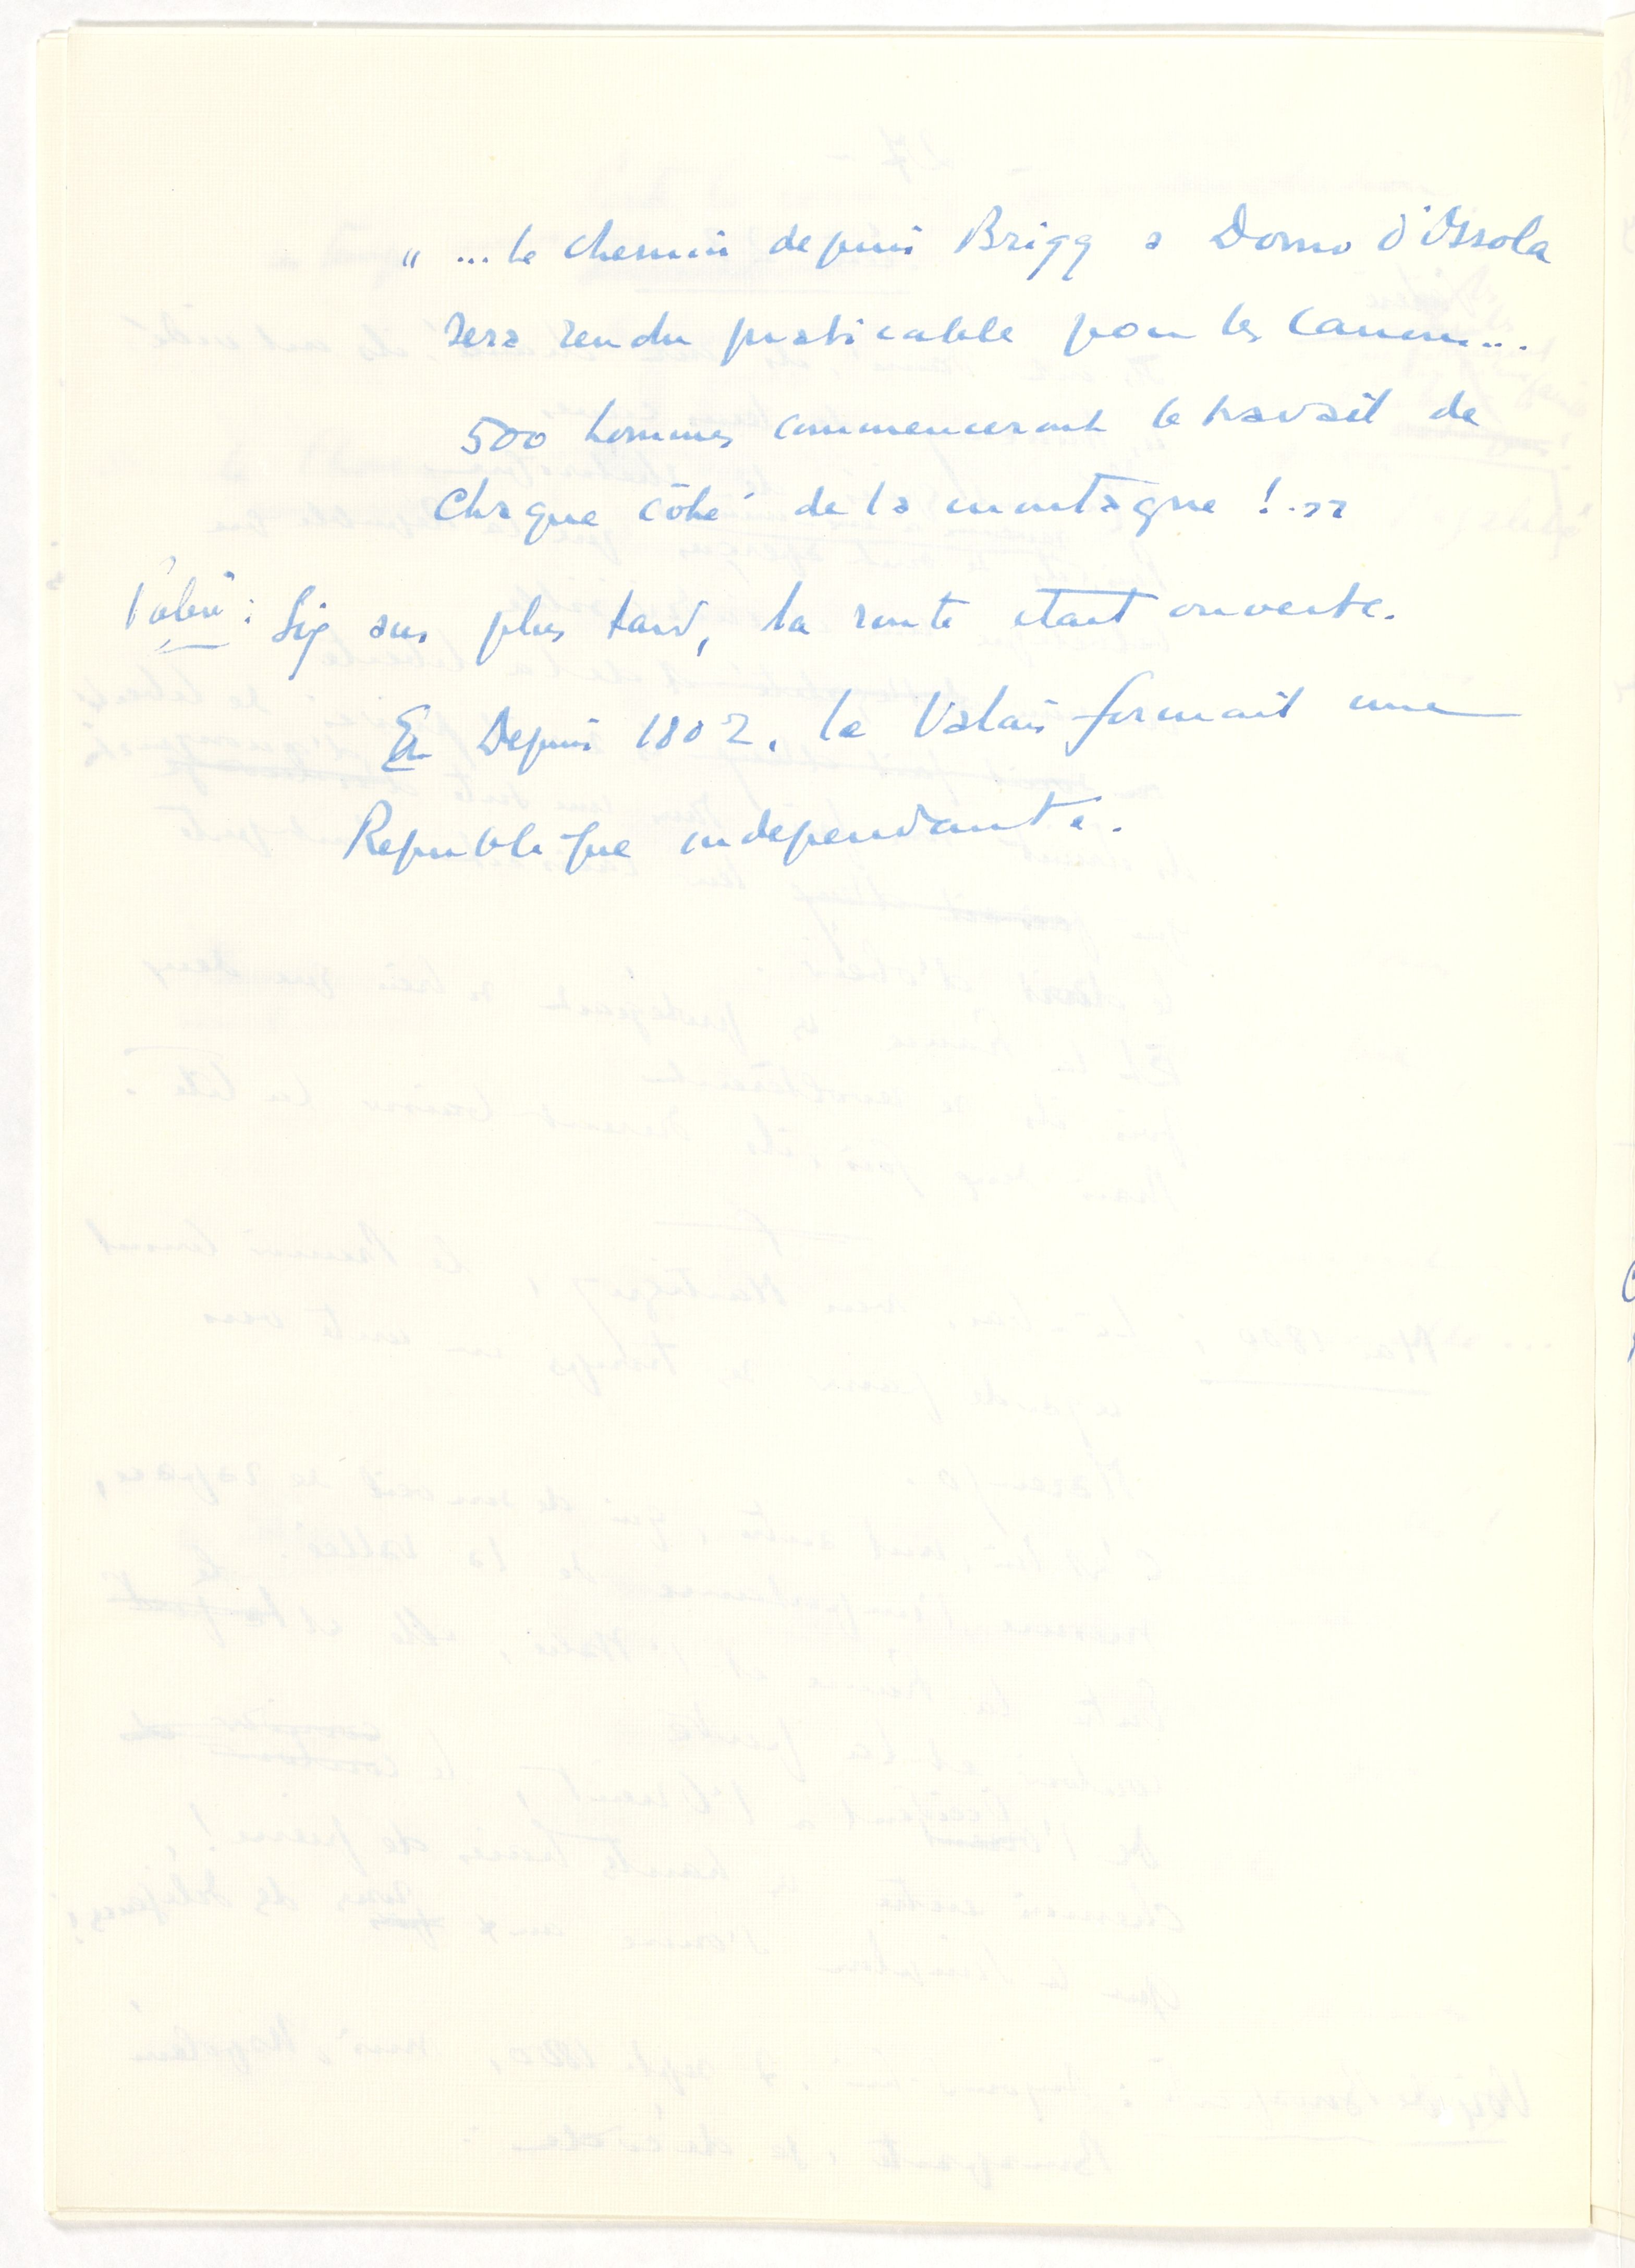 " ... le chemin depuis Brigg a Domo d'Ossola
sera rendu praticable pour les canons...
500 hommes commenceront le travail de
chaque côté de la montagne ! "
Six ans plus tard, la route etait ouverte.
Et Depuis 1802, le Valais formait une
Republique independante.